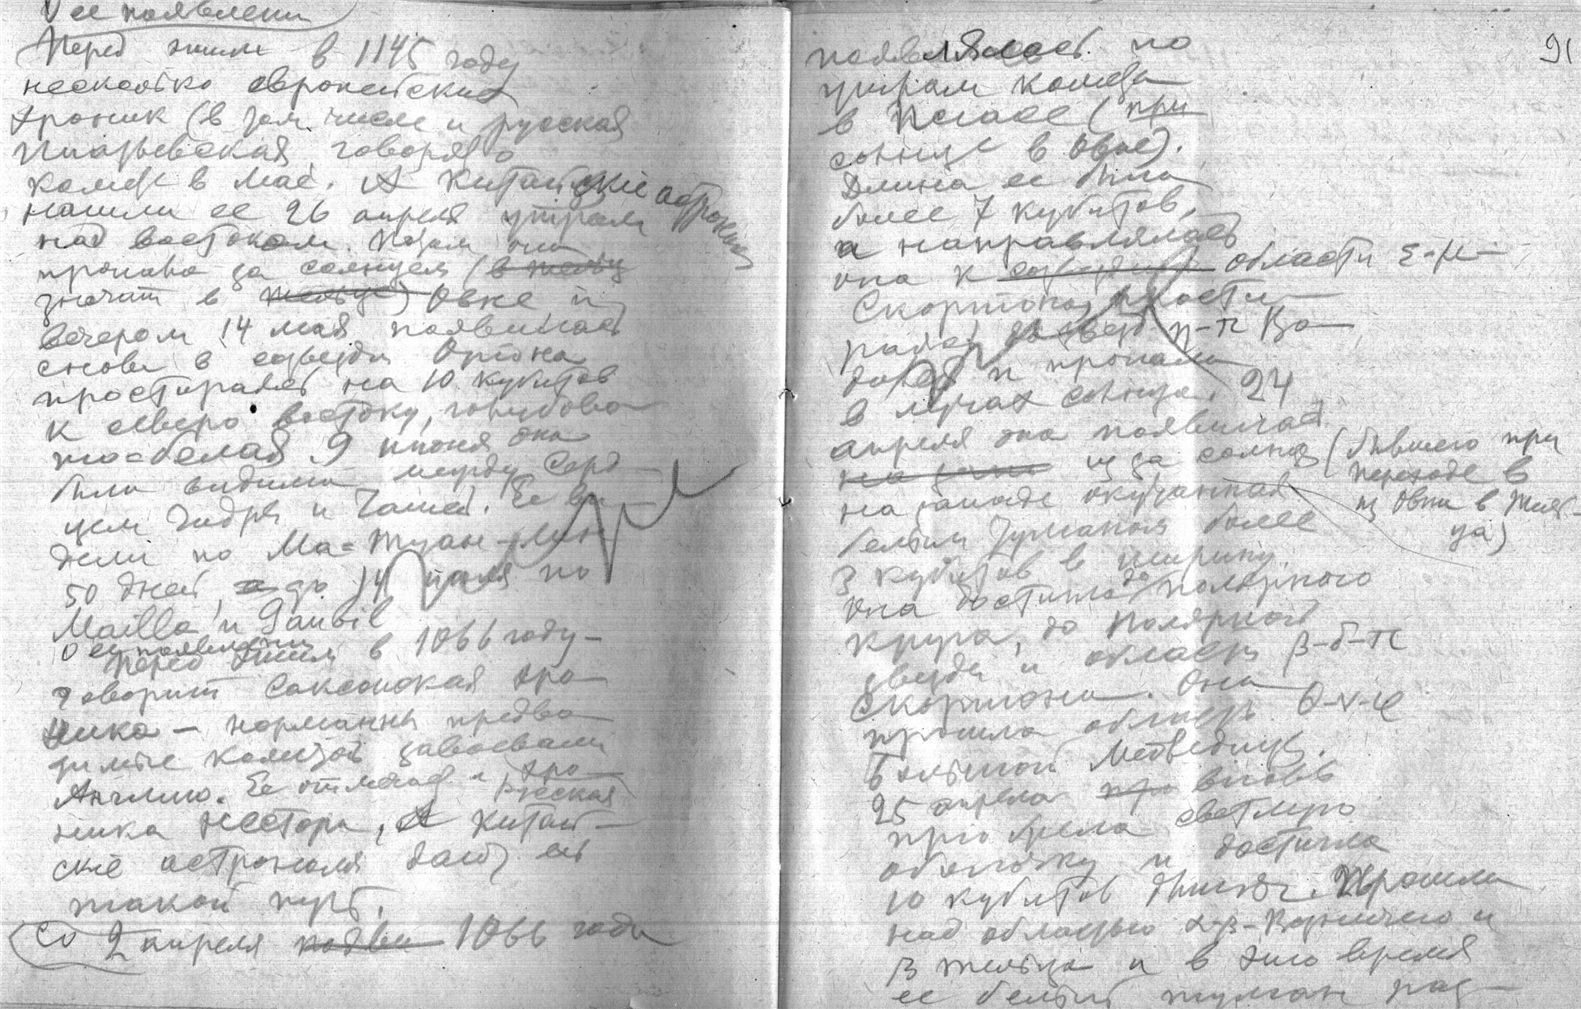 О ее появлении
Перед этим в 1145 году
несколько европейских
хроник (в том числе и русская
Ипатьевская, говорят о
комете в мае. Китайские астрономы
нашли ее 26 апреля утром
над востоком. Потом они
пропала за солнцем (в Тельце
значит в Тельце) Овне и
вечером 14 мая появилась
снова в созвезди Ориона
простираясь на 10 кубитов
к северо востоку, голубова
то=белая 9 июня она
была видима между Серд
цем Гидры и Чашей. Ее ви
дели по Ма=Туан-Лин
50 дней, а до 14 июля по
Mailla и Gaubil
О ее появлении
Перед этим в 1066 году-
говорит Саксонская хро
ника - норманны предво
димые кометой завоевали
Англию. Ее отмечает и русская хро
ника Нестора, А Китай-
ские астрономы дают ей
такой путь.
Со 2 апреля 1066 года
91
появлялась по
утрам комета
в Пегасе (при
солнце в Овне).
Длина ее была
более 7 кубитов,
а направлялась
она к созвездию области ε-μ-
Скорпиона,
π-π Во
далей и пропала
в лучах солнца. 24
апреля она появилась
из за солнца (бывшего при
переходе
из Овна в Тель-
ца)
на западе окутанная
белым туманом более
3 кубитов в ширину.
Она достигла до полярного
круга, до Полярной
звезды и области β-δ-π
Скорпиона. Она
прошла область θ-ν-φ
Большой Медведицы.
25 апреля про вновь
приобрела светлую
оболочку и достигла
10 кубитов длиною. Прошла
над областью α-β-Возничего и
β Тельца и в это время
ее белый туман раз-